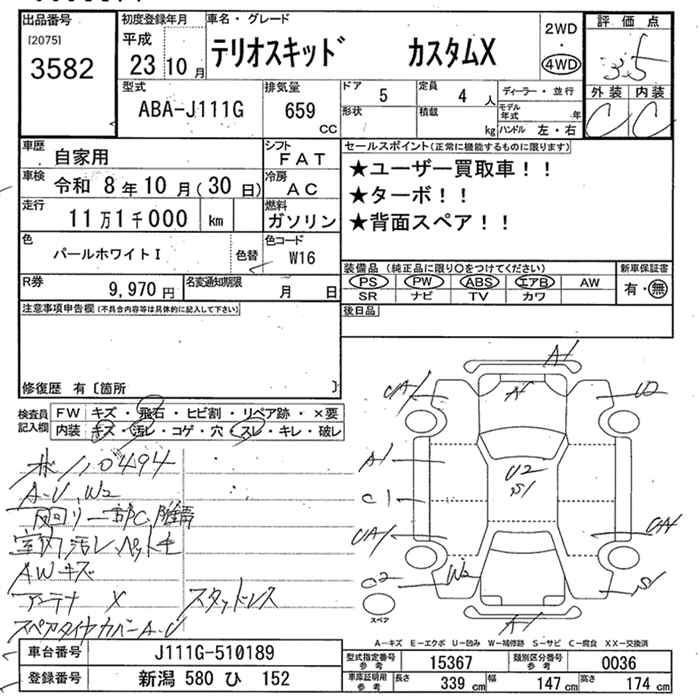 出品番号
[2075]
3582
初度登録年月
平成
23 10 月
車名・グレード
テリオスキッド カスタムX
2WD
・
4WD
評価点
3.5
外装 内装
C C
型式
ABA-J111G
排気量
659 CC
ドア
5
定員
4 人
形状
積載
kg
ディーラー・並行
モデル年式 年
ハンドル 左・右
車歴
自家用
シフト
FAT
車検 令和 8年 10月(30日)
冷房
AC
走行
11万1千000 km
燃料
ガソリン
色
パールホワイトI
色替
色コード
W16
R券
9,970 円
名変通知期限
月 日
セールスポイント(正常に機能するものに限ります)
★ユーザー買取車!!
★ターボ!!
★背面スペア!!
装備品(純正品に限り○をつけてください)
PS PW ABS エアB AW
SR ナビ TV カワ
新車保証書
有・無
後日品
注意事項申告欄(不具合内容等は具体的に記入して下さい)
修復歴 有〔箇所 〕
検査員記入欄
FW キズ・飛石・ヒビ割・リペア跡・×要
内装 キズ・汚レ・コゲ・穴・スレ・キレ・破レ
A-U、W2
下回り一部C、
室内汚レ、ペット毛
AWキズ
アンテナ X スタッドレス
スペアタイヤカバーA-U
A1
UA1
A1
U2
A1
C1
U2
S1
UA1
UA1
C2
W2
S1
A1
スペア
A-キズ E-エクボ U-凹み W-補修跡 S-サビ C-腐食 XX-交換済
車台番号
J111G-510189
登録番号
新潟 580 ひ 152
型式指定番号 参考
15367
類別区分番号 参考
0036
車庫証明用 参考
長さ 339 cm 幅 147 cm 高さ 174 cm